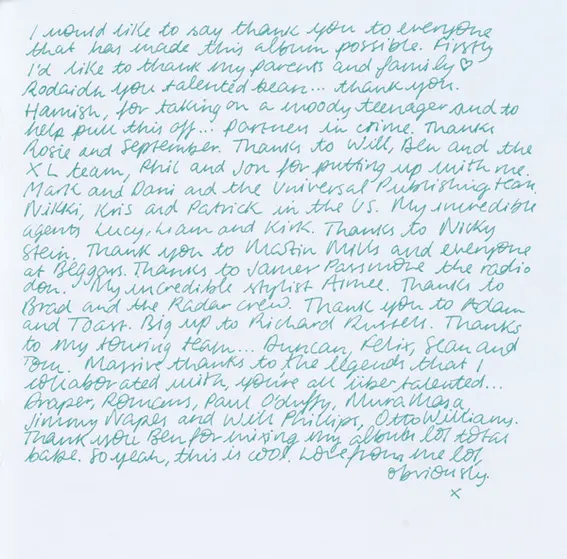 I would like to say thank you to everyone
that has made this album possible. Firstly
I'd like to thank my parents and family♡
Rodaidh you talented bean... thank you.
Hamish, for taking on a moody teenager and to
help pull this off... partners in crime. Thanks
Rosie and September. Thanks to Will, Ben and the
XL team, Phil and Jon for putting up with me.
Mark and Dani and the Universal Publishing team.
Nikki, Kris and Patrick in the US. My incredible
agents Lucy, Liam and Kirk. Thanks to Nicky
Stein. Thank you to Martin Mills and everyone
at Beggars. Thanks to James Passmore the radio
don. My incredible stylist Aimee. Thanks to
Brad and the Radar crew. Thank you to Adam
and Toast. Big up to Richard Russell. Thanks
to my touring team... Duncan, Felix, Sean and
Tom. Massive thanks to the legends that I
collaborated with, you're all über talented...
Draper, Romans, Paul O'duffy, Mura Masa
Jimmy Napes and Will Phillips, Otto Williams.
Thank you Ben for mixing my album lol total
babe. So yeah, this is cool. Love from me lol
obviously.
x